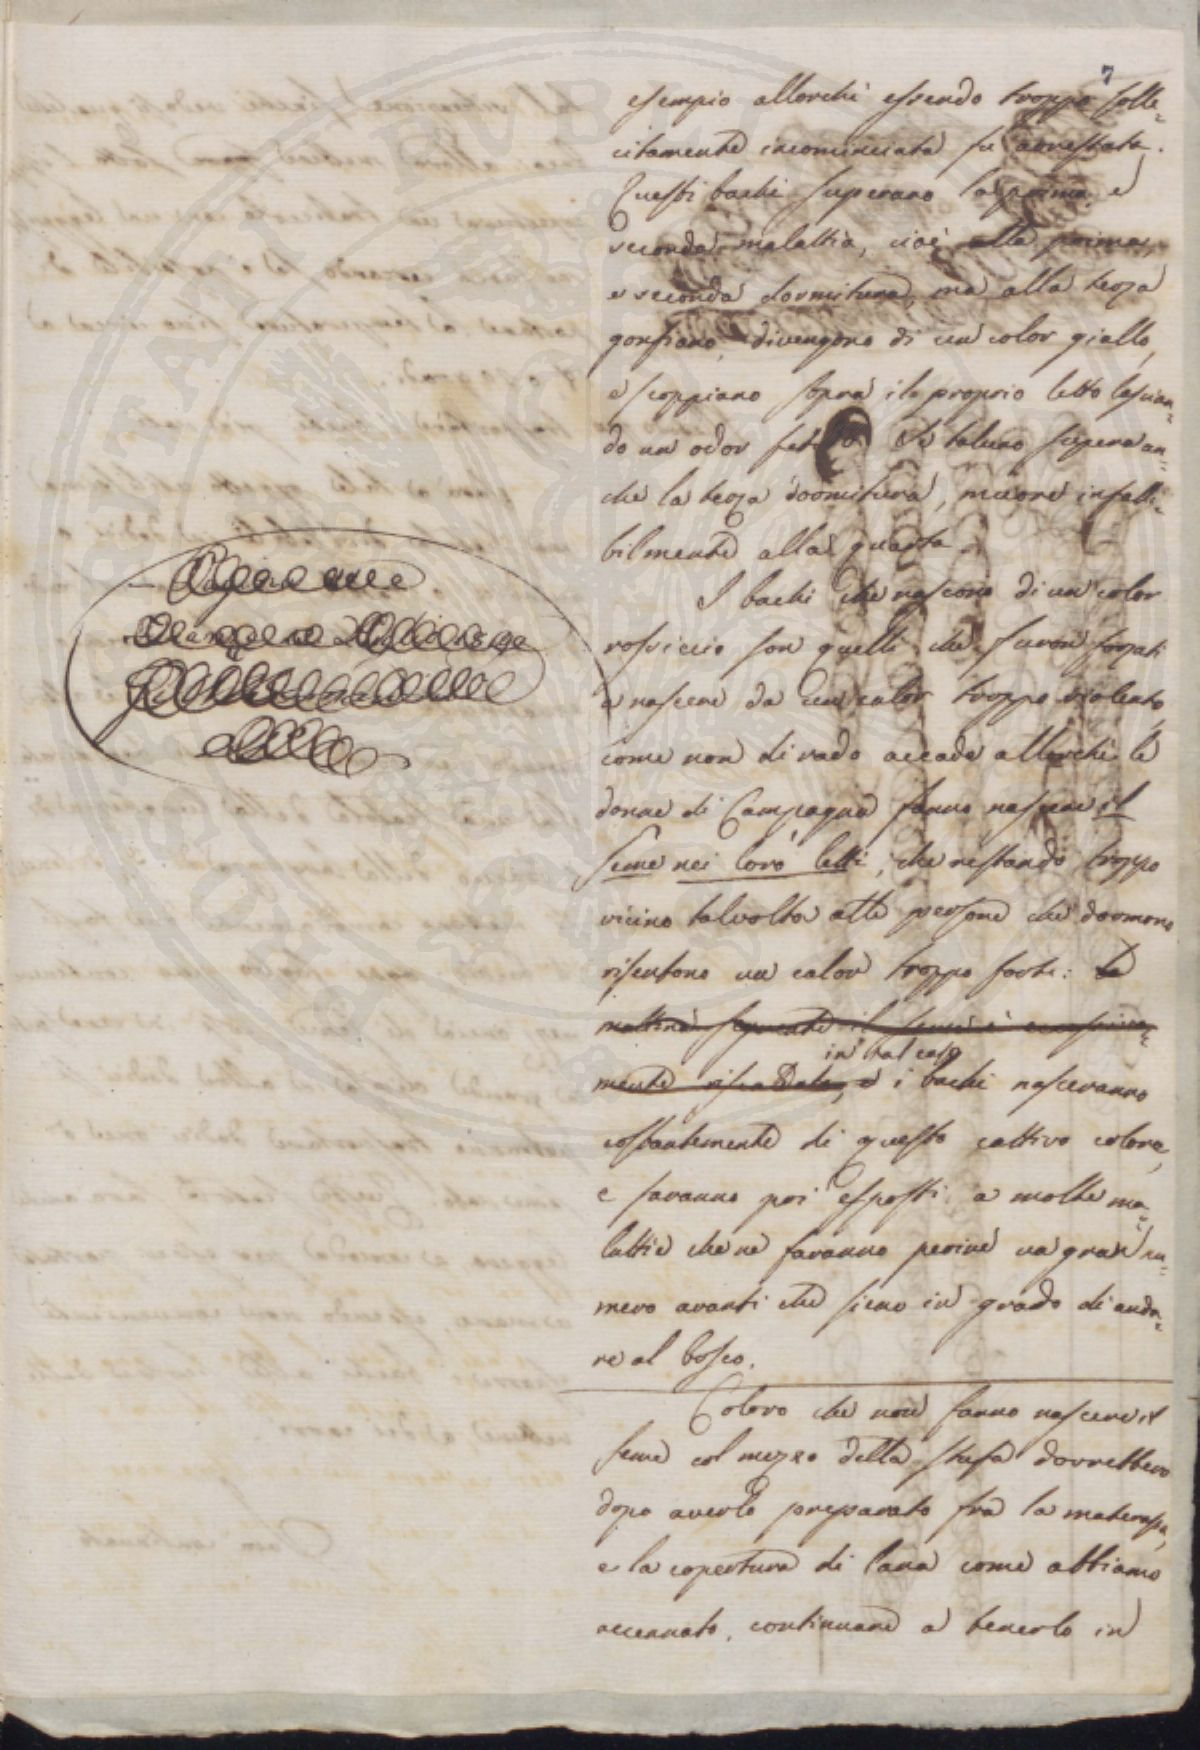 7
esempio allorchè essendo troppo solle-
citamente incominciata fu arrestata.
Questi bachi superano la prima, e
seconda malattia, cioè alla prima,
e seconda dormitura, ma alla terza
gonfiano, divengono di un color giallo,
e scoppiano sopra il proprio letto lascian-
do un odor Se taluno supera an-
che la terza dormitura, muore infalli-
bilmente alla quarta.
I bachi che nascono di un color
rossiccio son quelli che furon forzati
a nascere da un calor troppo violento,
come non di rado accade allorchè le
donne di Campagna fanno nascere il
seme nei loro letti, che restando troppo
vicino talvolta alle persone che dormono
risentono un calor troppo forte: la
mattina seguente il seme è
in tal caso
mente riscaldato, e i bachi nasceranno
costantemente di questo cattivo colore,
e saranno poi esposti a molte ma-
lattie che ne faranno perire un gran nu-
mero avanti che sieno in grado di anda-
re al bosco.
Coloro che non fanno nascere il
seme col mezzo della stufa dovrebbero
dopo averlo preparato fra la materassa,
e la copertura di lana come abbiamo
accennato, continuare a tenerlo in